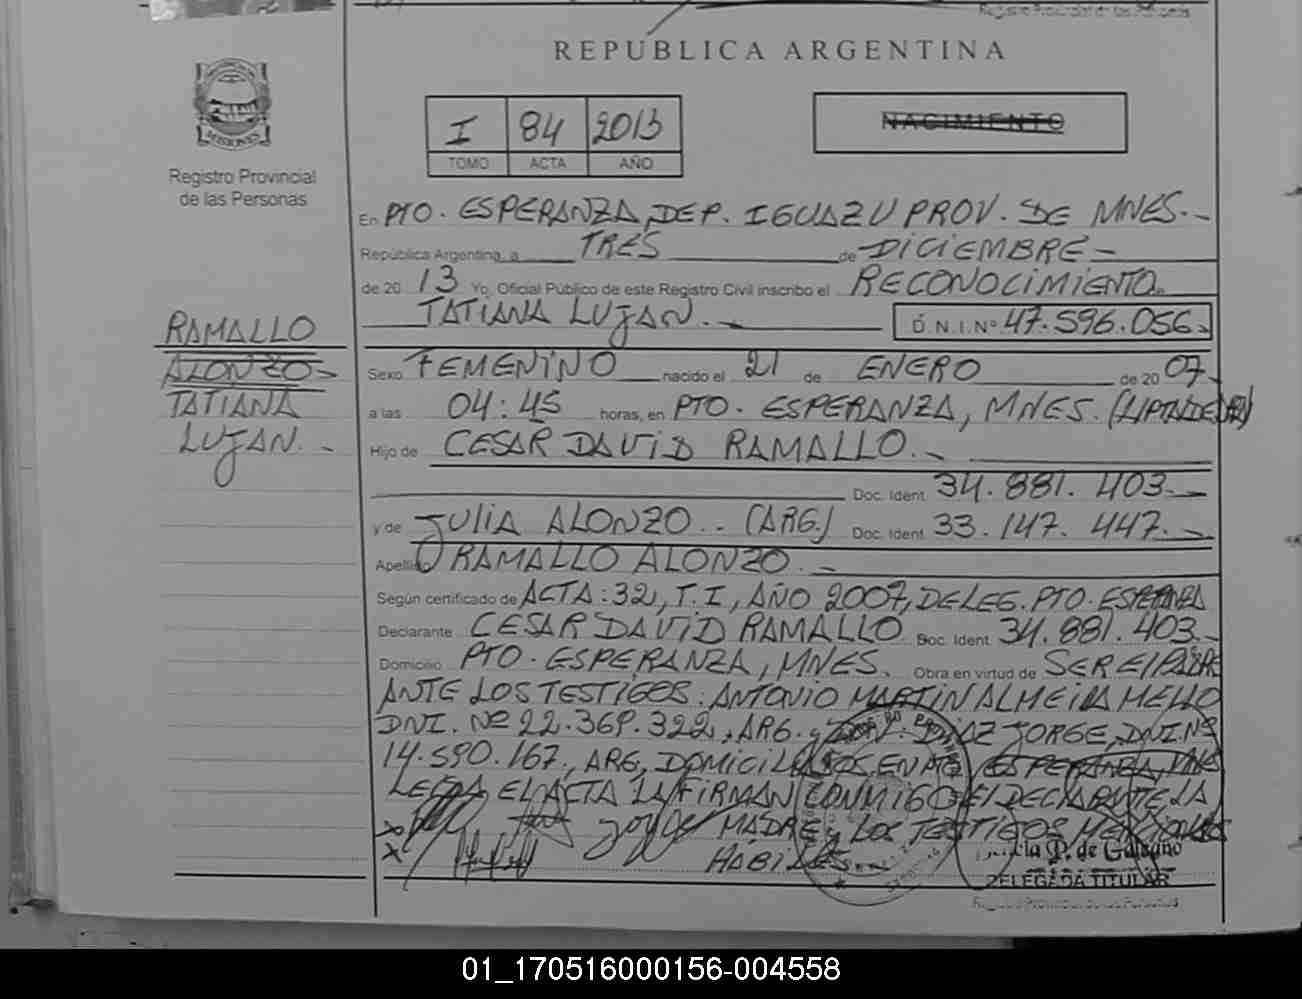 REPUBLICA ARGENTINA
MISIONES
Registro Provincial
de las Personas
I 84 2013
TOMO ACTA AÑO
NACIMIENTO
En PTO. ESPERANZA, DEP. IGUAZU PROV. DE MNES.-
República Argentina, a TRES de DICIEMBRE-
de 20 13 Yo, Oficial Público de este Registro Civil inscribo el RECONOCIMIENTO
TATIANA LUJAN.- D.N.I. Nº 47.596.056.
RAMALLO
ALONZO-
TATIANA
LUJAN.-
Sexo FEMENINO nacido el 21 de ENERO de 20 07-
a las 04:45 horas, en PTO. ESPERANZA, MNES.
Hijo de CESAR DAVID RAMALLO.-
Doc. Ident. 34.881.403.-
y de JULIA ALONZO.- (ARG.) Doc. Ident. 33.147.447.-
Apellido RAMALLO ALONZO.-
Según certificado de ACTA: 32, T. I, AÑO 2007, DELEG. PTO. ESPERANZA
Declarante CESAR DAVID RAMALLO Doc. Ident. 34.881.403.-
Domicilio PTO. ESPERANZA, MNES. Obra en virtud de SER EL PADRE
ANTE LOS TESTIGOS: ANTONIO MARTIN ALMEIDA MELLO
DNI. Nº 22.369.322, ARG. y DIAZ JORGE, DNI Nº
14.590.167, ARG, DOMICILIADOS EN PTO ESPERANZA, MNES
LEIDA EL ACTA LA FIRMAN CONMIGO EL DECLARANTE LA
MADRE y LOS TESTIGOS
HABILES.-
P. de Galeano
DELEGADA TITULAR
Registro Provincial de las Personas
01_170516000156-004558